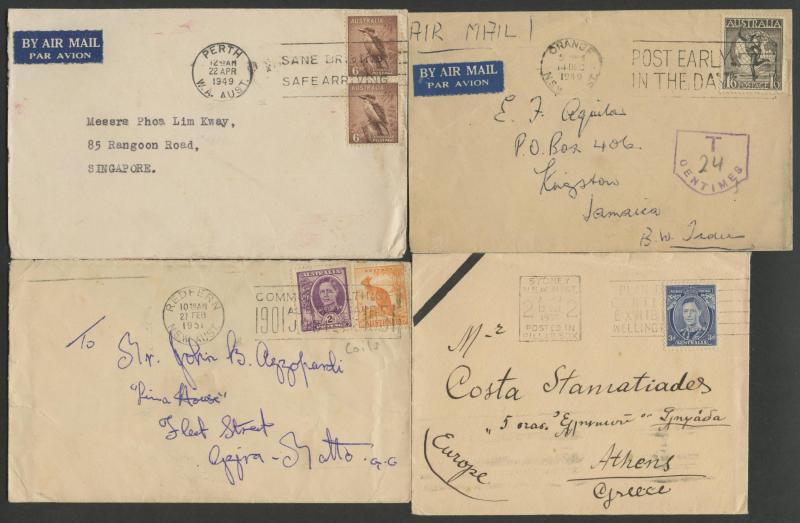 BY AIR MAIL
PAR AVION
PERTH
12 30AM
22 APR
1949
W.A. AUST.
SANE DRIVING
SAFE ARRIVING
AUSTRALIA
6D
AUSTRALIA
6D
Messrs Phoa Lim Kway,
85 Rangoon Road,
SINGAPORE.
AIR MAIL
BY AIR MAIL
PAR AVION
ORANGE
1949
POST EARLY
IN THE DAY
AUSTRALIA
1/6 POSTAGE 1/6
E. F. Aquilar
P.O. Box 406.
Kingston
Jamaica
B.W. Indies
T
24
CENTIMES
REDFERN
21 FEB
1951
N.S.W. AUST
COMM
1901 JU
AUSTRALIA
2
AUSTRALIA
Coils
To
Mr. John B. Azzopardi
"Lina House"
Fleet Street
Gzira - Malta. G.C
SYDNEY
N.S.W. AUST.
POSTED IN
EXHIB
WELLING
3D 3D
AUSTRALIA
Mr
Costa Stamatiades
Athens
Greece
(Europe